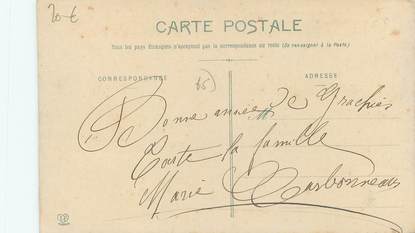 20 €
CARTE POSTALE
Tous les pays étrangers n'acceptent pas la correspondance au recto (Se renseigner à la Poste)
CORRESPONDANCE
ADRESSE
Bonne année de
Toute la famille
Marie Carbonneau